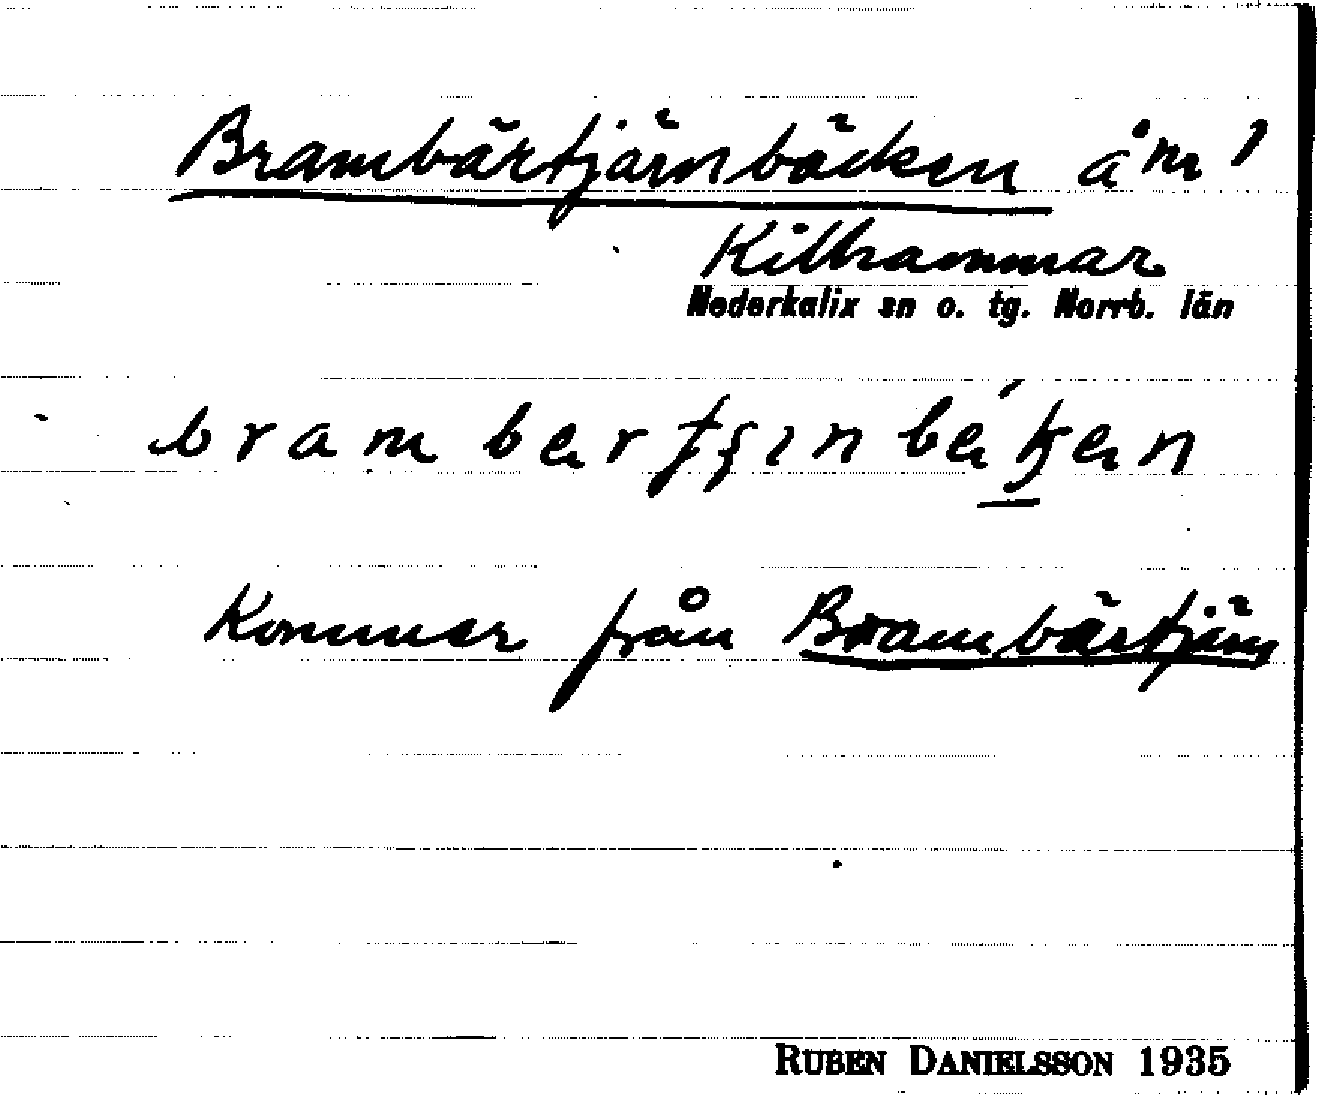 Brambärtjärnbäcken å nr 1
Kilhammar
Nederkalix sn o. tg. Norrb. län
Kommer från Brambärtjärn
RUBEN DANIELSSON 1935